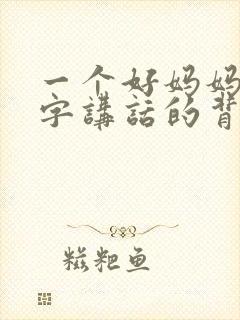 一个好妈妈
字講話的背
糍粑鱼